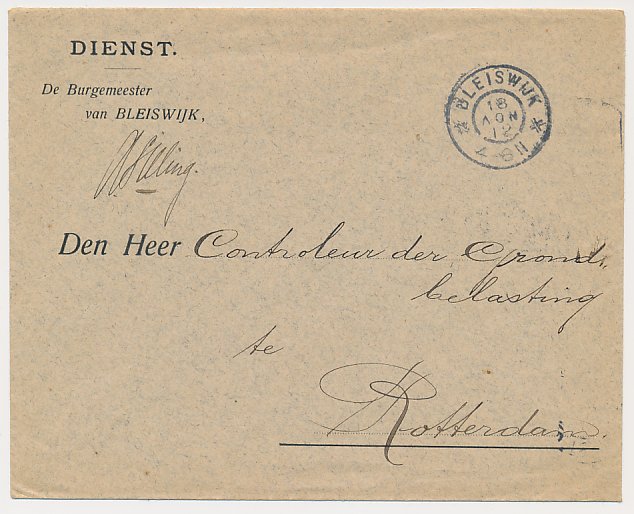 DIENST.
De Burgemeester
van BLEISWIJK,
BLEISWIJK
18
NOV
12
Den Heer Controleur der Grond-
belasting
te
Rotterdam.